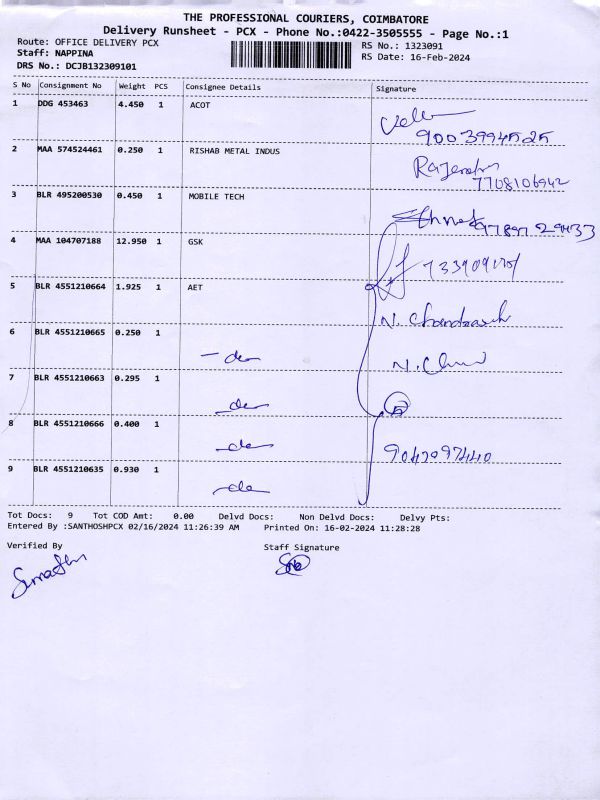 THE PROFESSIONAL COURIERS, COIMBATORE
Delivery Runsheet - PCX - Phone No.:0422-3505555 - Page No.:1
Route: OFFICE DELIVERY PCX
Staff: NAPPINA
DRS No.: DCJB132309101
RS No.: 1323091
RS Date: 16-Feb-2024
S No Consignment No Weight PCS Consignee Details Signature
1 DDG 453463 4.450 1 ACOT
2 MAA 574524461 0.250 1 RISHAB METAL INDUS
7708106942
3 BLR 495200530 0.450 1 MOBILE TECH
4 MAA 104707188 12.950 1 GSK
5 BLR 4551210664 1.925 1 AET
6 BLR 4551210665 0.250 1
7 BLR 4551210663 0.295 1
8 BLR 4551210666 0.400 1
9 BLR 4551210635 0.930 1
Tot Docs: 9 Tot COD Amt: 0.00 Delvd Docs: Non Delvd Docs: Delvy Pts:
Entered By :SANTHOSHPCX 02/16/2024 11:26:39 AM Printed On: 16-02-2024 11:28:28
Verified By Staff Signature